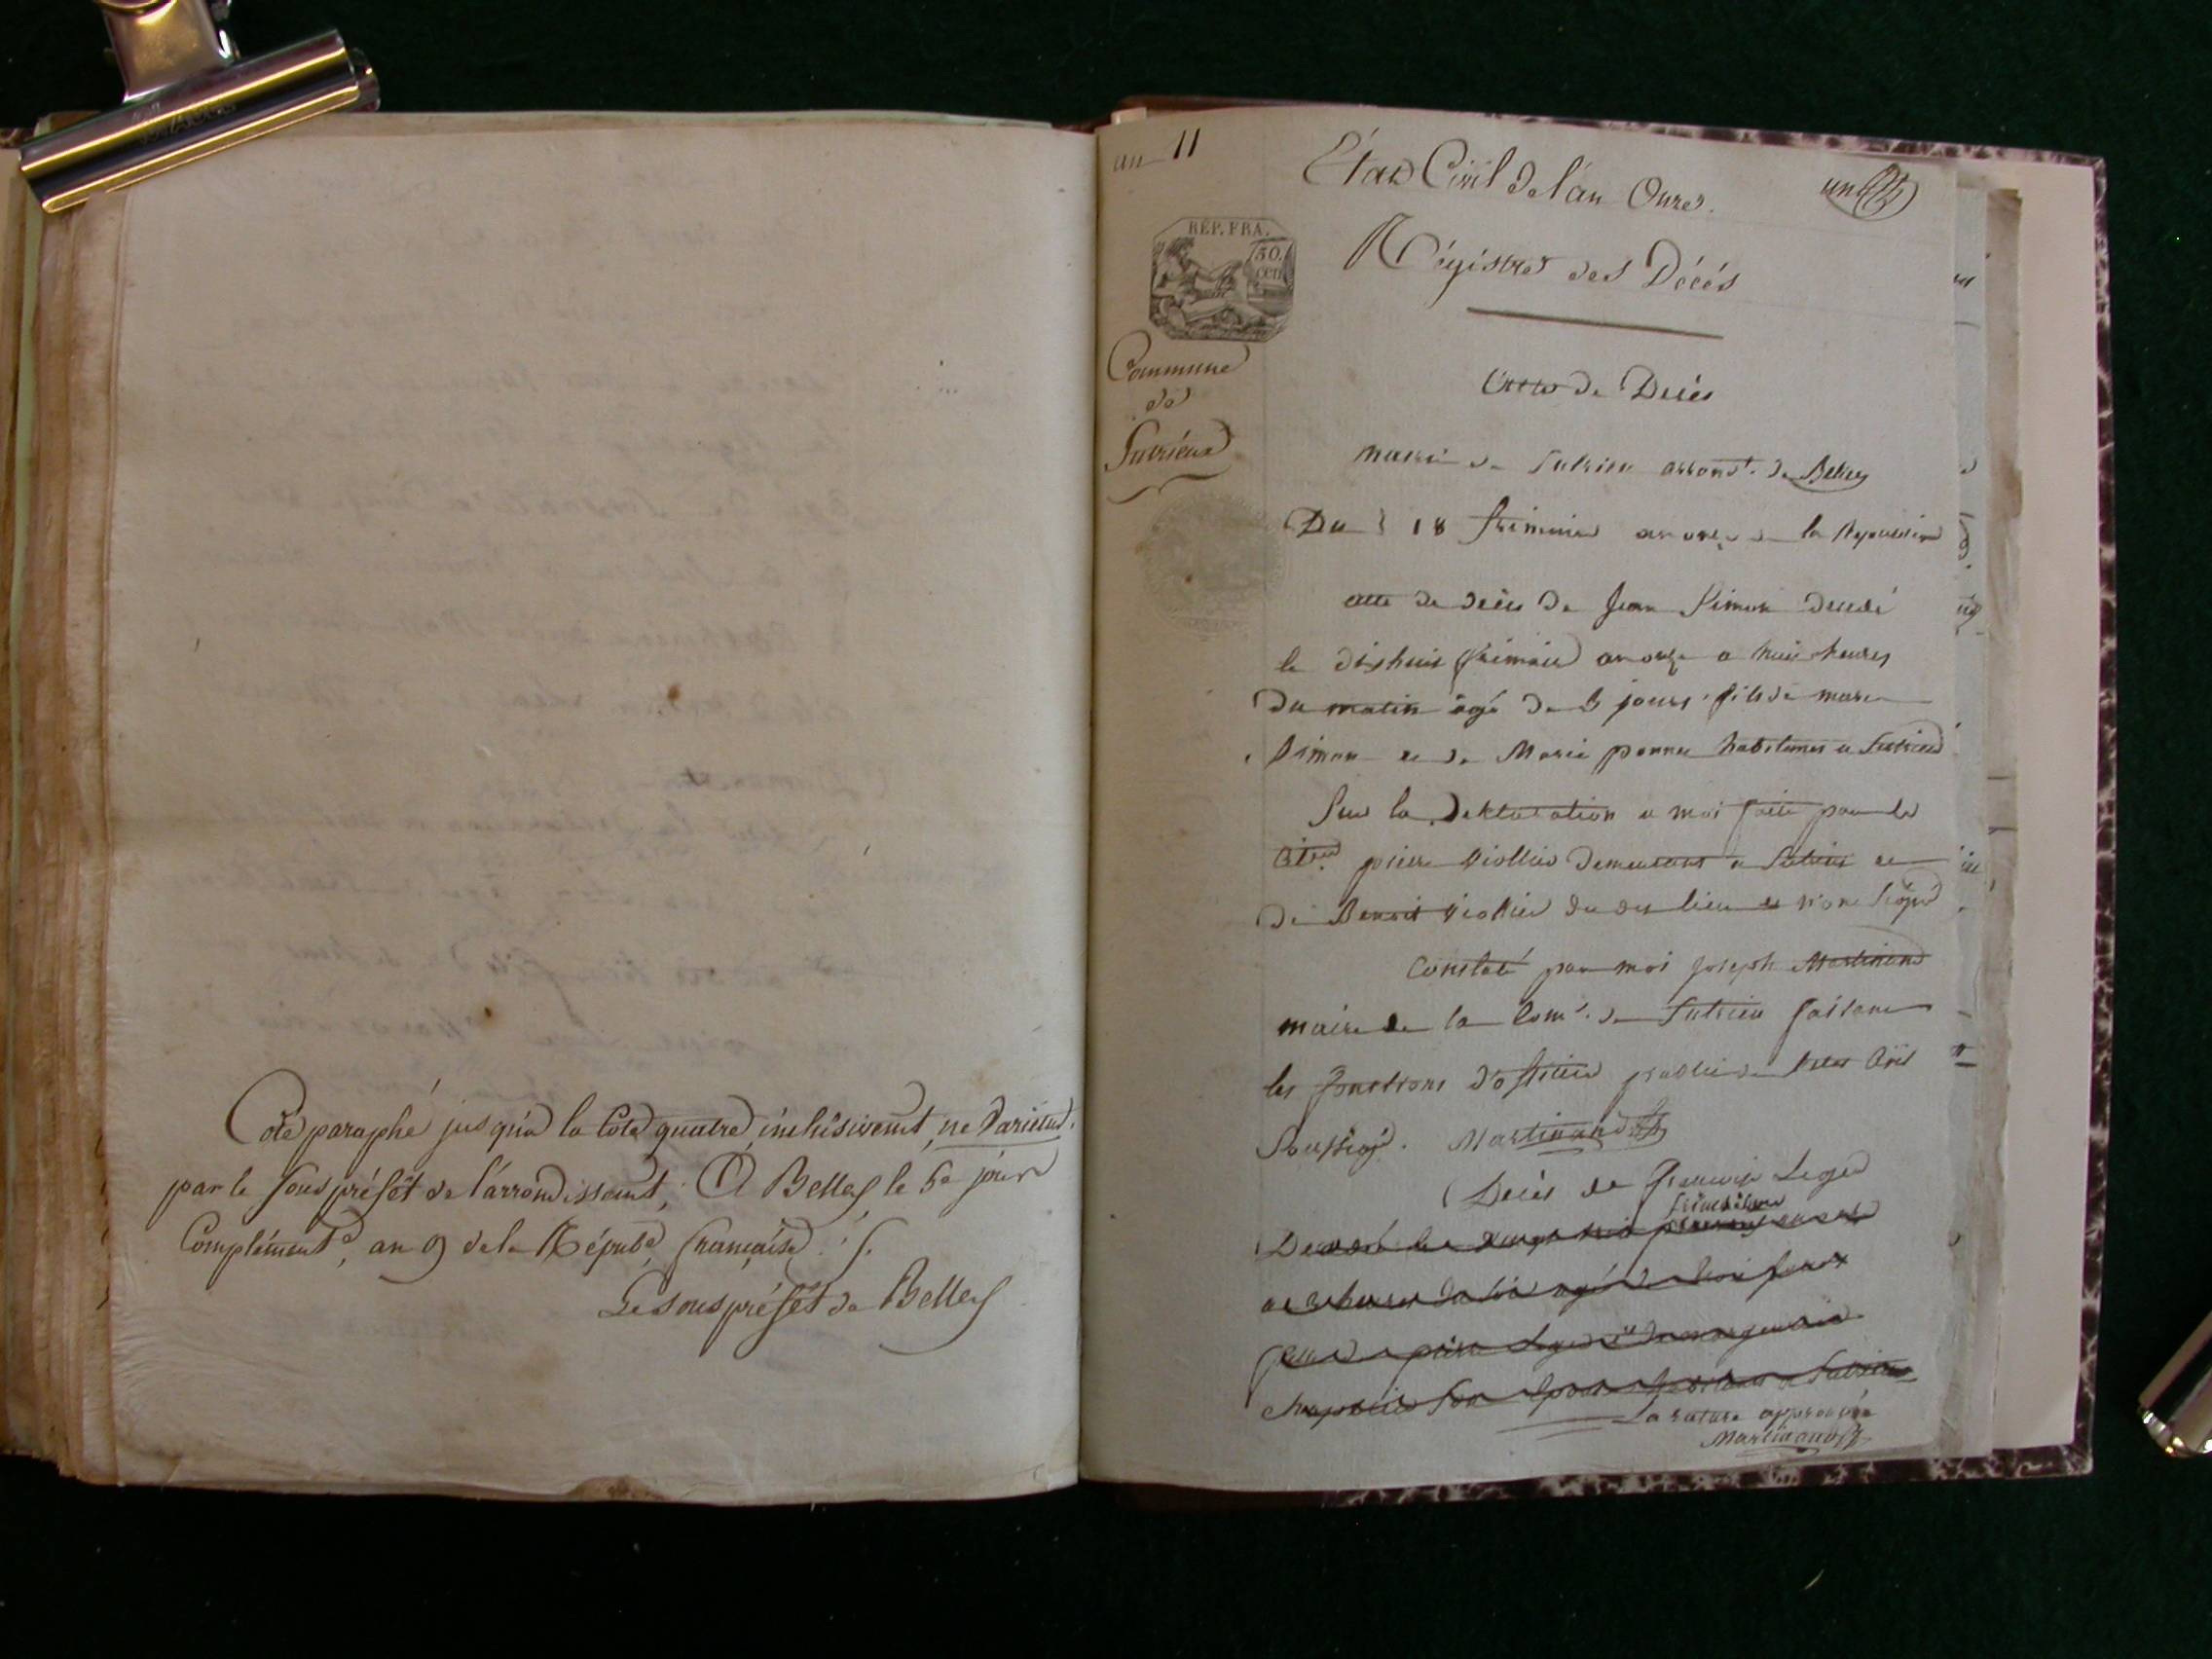 Coté paraphé jusqu'a la Cote quatre inclusivemt, ne Varietur.
par le Sous préfêt de l'arrondissemt, A Belley le 5e jour
Complément.e, an 9 de la Répub.e française ./.
Le sous préfêt de Belley
an 11
Etat Civil de l'an Onze.
un
REP. FRA.
50.
cen
Régistre des Décés
Commune
de
Sutrieux
Acte de Décès
mairie de Sutrieu arrond.t de Belley
Du 18 frimaire an onze de la Republique
acte de décès de Jean Simon décédé
le dixhuit frimaire an onze a huit heures
du matin âgé de 3 jours, fils de marc
Simon et de Marie habitants a Sutrieu
Sur la déklaration a moi faite par le
pierre Viollier demeurant a Sutrieu et
de Benoit Viollier du dit lieu et n'ont signé
Constaté par moi joseph Martinand
maire de la Com.e de Sutrieu faisant
les fonctions d'officier public de l'etat civil
Soussigé. Martinand
Décès de françoise Leger
Décédé le
fille de pierre Leger et de
Son epouse habitants a Sutrieu
La rature approuvée
Martinand